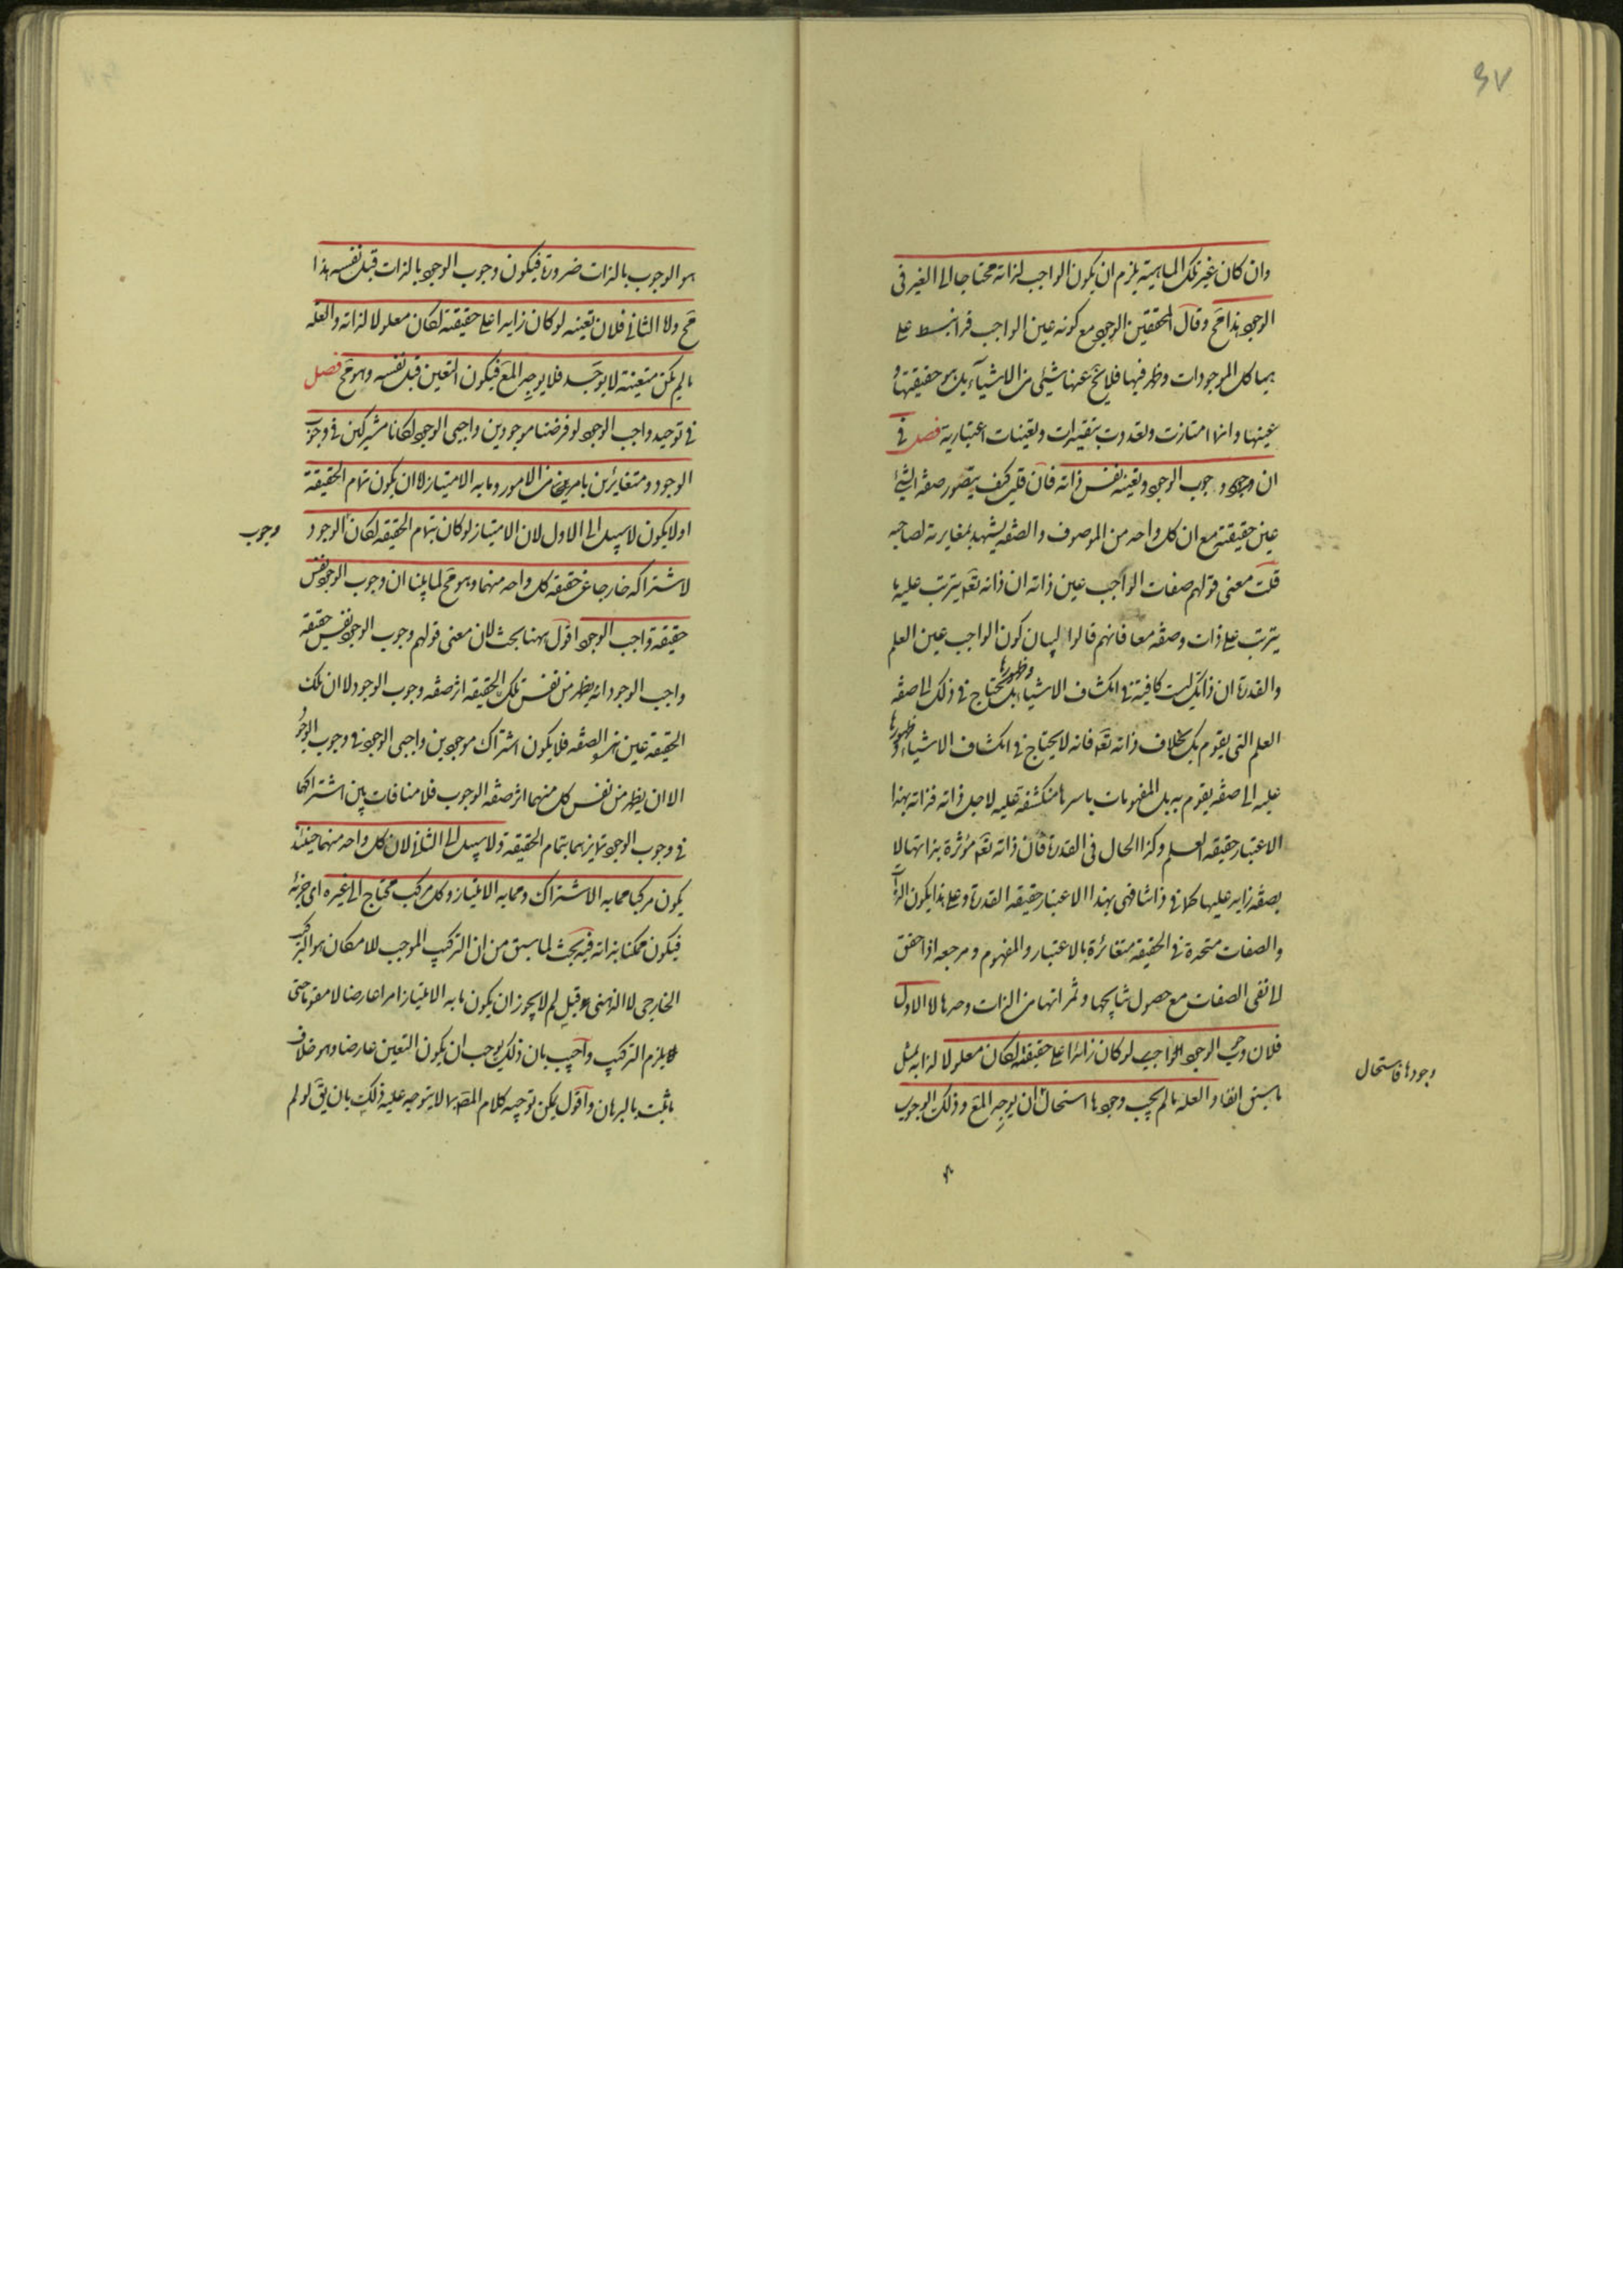 ٣٧
وان كان غير تلك الماهية يلزم ان يكون الواجب لذاته محتاجا الى الغير فى
الوجود هذا مح وقال المحققين الوجود مع كونه عين الواجب قد انبسط على
هياكل الموجودات وظهر فيها فلا يخ عنها شئ من الاشياء بل هو حقيقتها و
عينها وانما امتازت وتعددت بتقيدات وتعينات اعتبارية فصل فى
ان وجوده ووجوب الوجود وتعينه نفس ذاته فان قلت كيف يتصور صفة الشئ
عين حقيقته مع ان كل واحد من الموصوف والصفة يشهد بمغايرته لصاحبه
قلت معنى قولهم صفات الواجب عين ذاته ان ذاته تعه يترتب عليه ما
يترتب على ذات وصفة معا فانهم قالوا لبيان كون الواجب عين العلم
والقدرة ان ذاتك ليست كافية فى انكشاف الاشياء وظهورها بل تحتاج فى ذلك الى صفة
العلم التى يقوم بك بخلاف ذاته تعه فانه لا يحتاج فى انكشاف الاشياء وظهورها
عليه الى صفة يقوم به بل المفهومات باسرها منكشفة عليه لاجل ذاته فذاته بهذا
الاعتبار حقيقة العلم وكذا الحال فى القدرة فان ذاته تعه مؤثرة بذاتها لا
بصفة زايدة عليها كما فى ذاتنا فهى بهذا الاعتبار حقيقة القدرة وعلى هذا يكون الذات
والصفات متحدة فى الحقيقة متغائرة بالاعتبار والمفهوم ومرجعه اذا حقق
الى نفى الصفات مع حصول نتايجها وثمراتها من الذات وحدها لا الاول
فلان وجوب الوجود الواجب لو كان زائدا على حقيقته لكان معلولا لذاته بمثل
ما سبق انفا والعلة ما لم يجب وجودها استحال ان يوجد المع وذلك الوجوب
وجودها فاستحال
هو الوجوب بالذات ضرورة فيكون وجوب الوجود بالذات قبل نفسه هذا
مح ولا الثانى فلان تعينه لو كان زايدا على حقيقته لكان معلولا لذاته والعلة
ما لم يكن متعينة لا يوجد فلا يوجد المع فيكون التعين قبل نفسه وهو مح فصل
فى توحيد واجب الوجود لو فرضنا موجودين واجبى الوجود لكانا مشتركين فى وجوب
الوجود ومتغايرين بامر من الامور وما به الامتياز لا ان يكون تمام الحقيقة
او لا يكون لا سبيل الى الاول لان الامتياز لو كان بتمام الحقيقة لكان الوجود
وجوب
لاشتراكه خارجا عن حقيقة كل واحد منهما وهو مح لما بينا ان وجوب الوجود نفس
حقيقة واجب الوجود اقول ههنا بحث لان معنى قولهم وجوب الوجود نفس حقيقة
واجب الوجود انه يظهر من نفس تلك الحقيقة اثر صفة وجوب الوجود لا ان تلك
الحقيقة عين تلك الصفة فلا يكون اشتراك موجودين واجبى الوجود فى وجوب الوجود
الا ان يظهر من نفس كل منهما اثر صفة الوجوب فلا منافات بين اشتراكهما
فى وجوب الوجود وتمايزهما بتمام الحقيقة ولا سبيل الى الثانى لان كل واحد منهما حينئذ
يكون مركبا مما به الاشتراك ومما به الامتياز وكل مركب محتاج الى غيره اى جزئه
فيكون ممكنا بذاته فيه بحث لما سبق من ان التركيب الموجب للامكان هو التركيب
الخارجى لا الذهنى وقيل لم لا يجوز ان يكون ما به الامتياز امرا عارضا لا مقوما حتى
يلزم التركيب واجيب بان ذلك يوجب ان يكون التعين عارضا وهو خلاف
ما ثبت بالبرهان واقول يمكن توجيه كلام المصه لا يتوجه عليه ذلك بان يق لو لم